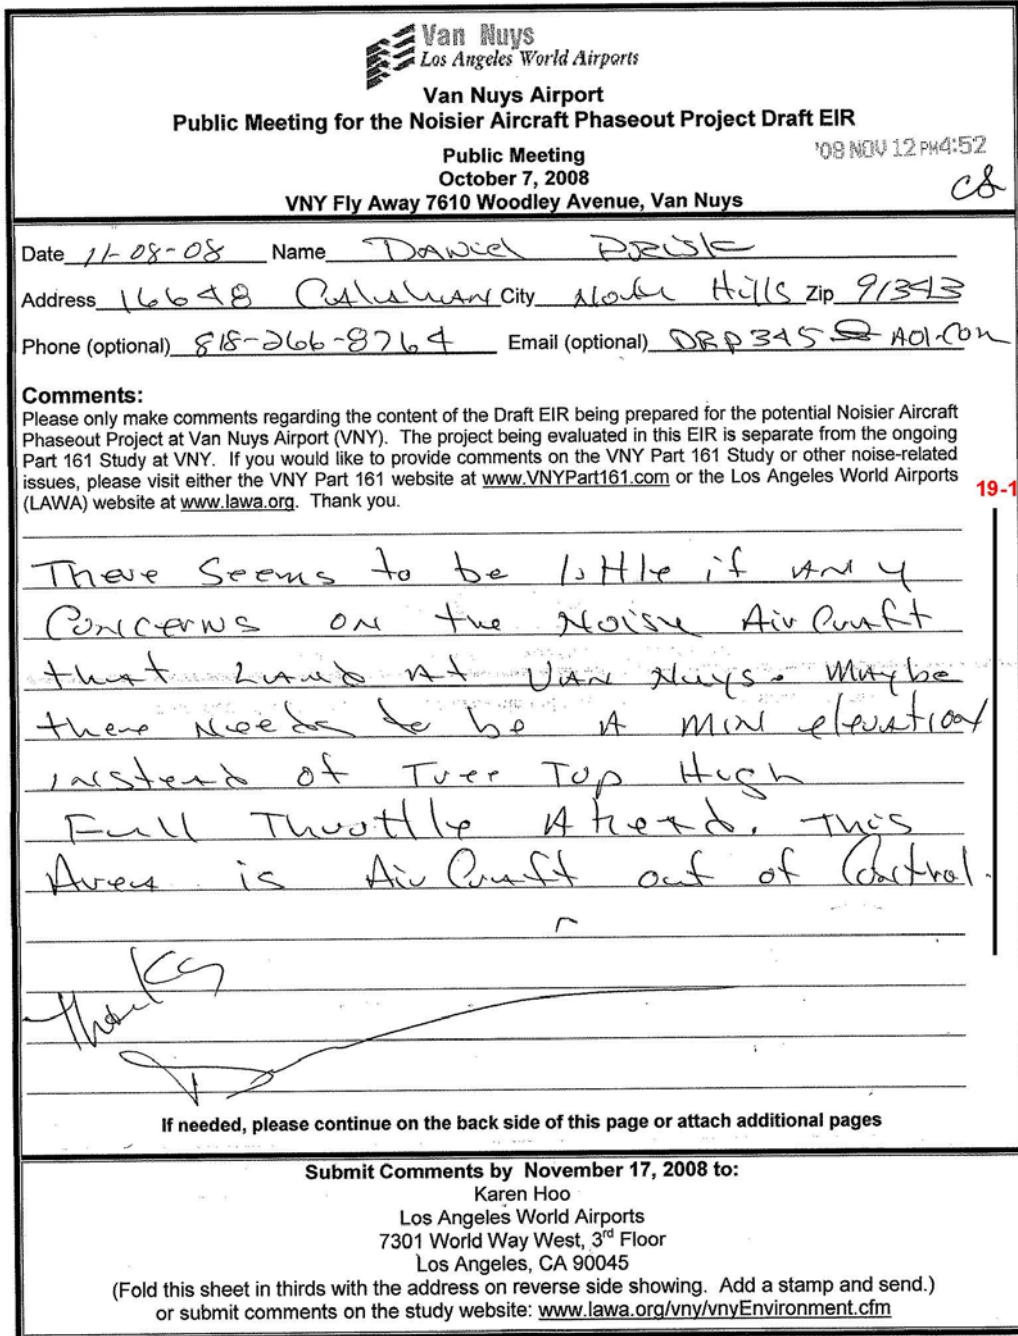 Van Nuys
Los Angeles World Airports
Van Nuys Airport
Public Meeting for the Noisier Aircraft Phaseout Project Draft EIR
'08 NOV 12 PM4:52
Public Meeting
October 7, 2008
VNY Fly Away 7610 Woodley Avenue, Van Nuys
Date 11-08-08 Name Daniel
Address 16648 City North Hills Zip 91343
Phone (optional) 818-266-8764 Email (optional) DRP345@AOl.Com
Comments:
Please only make comments regarding the content of the Draft EIR being prepared for the potential Noisier Aircraft
Phaseout Project at Van Nuys Airport (VNY). The project being evaluated in this EIR is separate from the ongoing
Part 161 Study at VNY. If you would like to provide comments on the VNY Part 161 Study or other noise-related
issues, please visit either the VNY Part 161 website at www.VNYPart161.com or the Los Angeles World Airports
(LAWA) website at www.lawa.org. Thank you.
19-1
There Seems to be little if any
Concerns on the Noise Air Craft
that Land At Van Nuys. Maybe
there Needs to be A MIN elevation
instead of Tree Top High
Full Throttle Ahead. This
Area is Air Craft out of Control.
Thanks
If needed, please continue on the back side of this page or attach additional pages
Submit Comments by November 17, 2008 to:
Karen Hoo
Los Angeles World Airports
7301 World Way West, 3rd Floor
Los Angeles, CA 90045
(Fold this sheet in thirds with the address on reverse side showing. Add a stamp and send.)
or submit comments on the study website: www.lawa.org/vny/vnyEnvironment.cfm